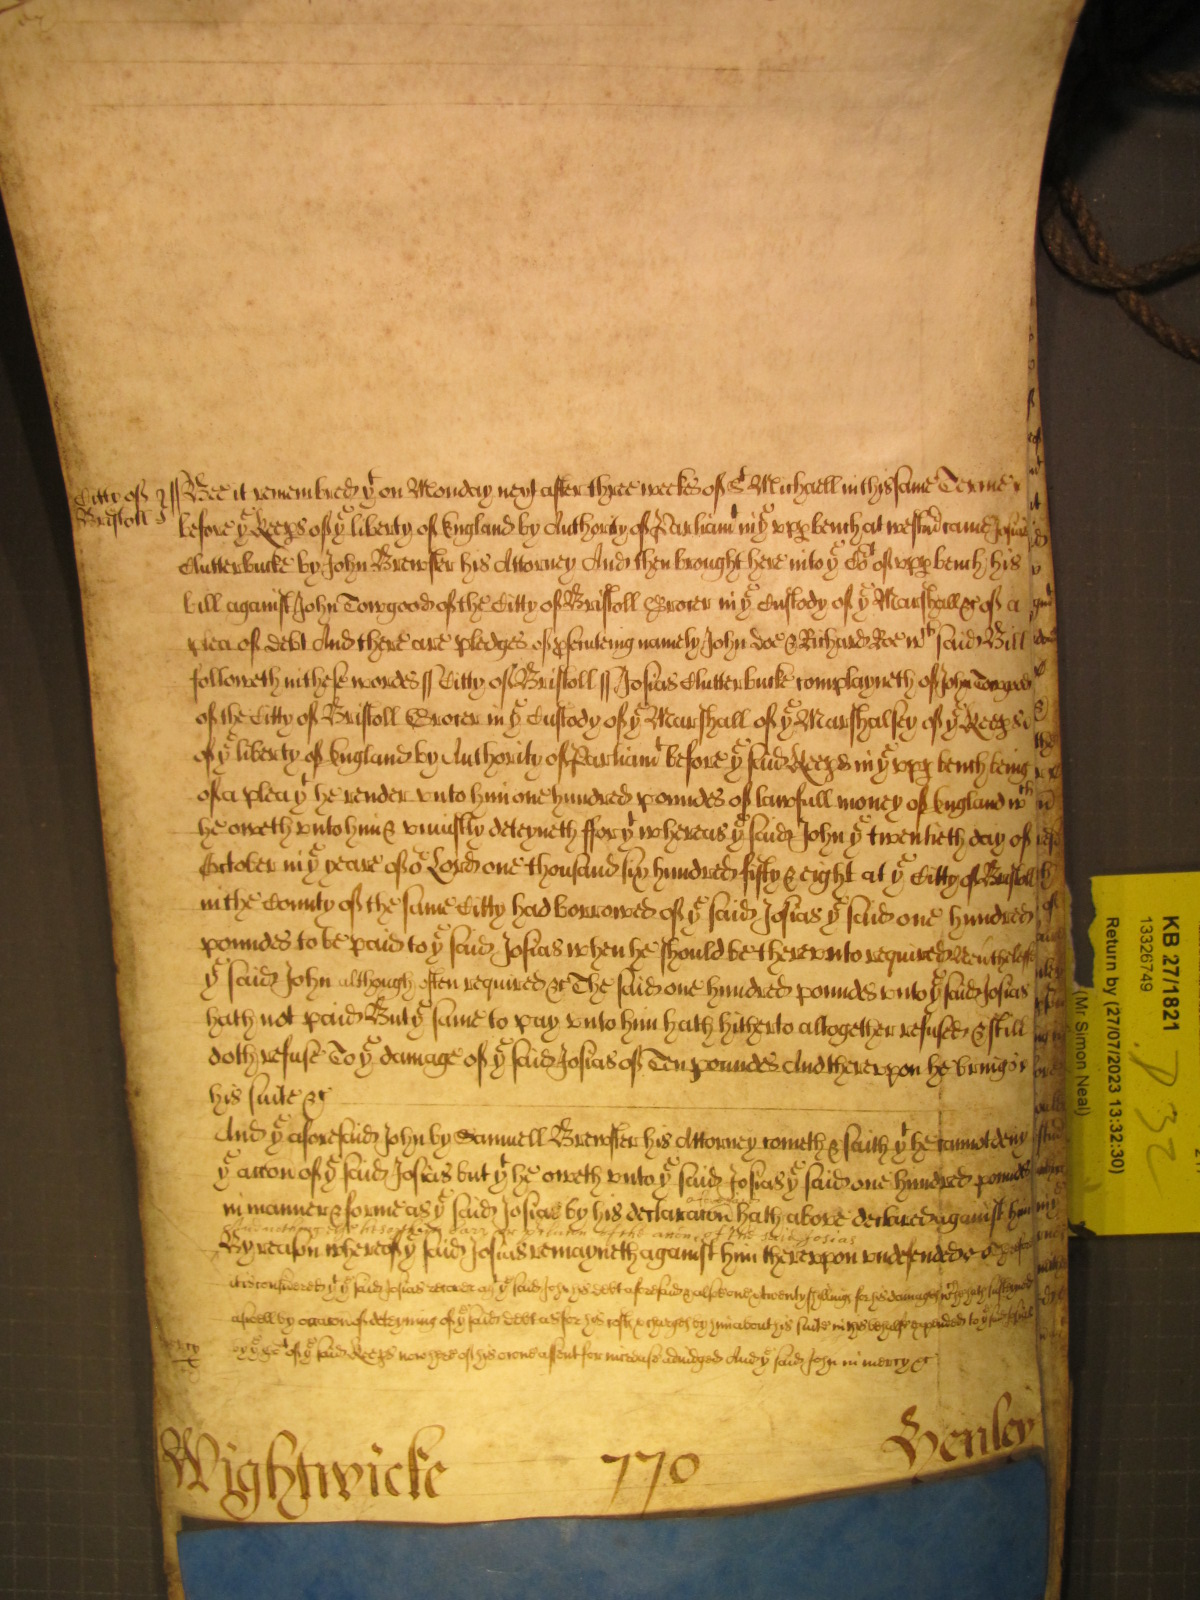 Citty of
Bristoll
Bee it remembred yt on Monday next after three weekes of St Michaell in this same Terme
before ye Keeps of ye liberty of England by Authority of Parliamt in ye upp bench at westmr came Josias
Clutterbucke by John Brewster his Attorney And then brought here into ye Cort of upp bench his
bill against John Towgood of the Citty of Bristoll Grocer in ye Custody of ye Marshall &c of a
plea of debt And there are pledges of psenteing namely John Doe & Richard Roe wch said Bill
followeth in these wordes ss Citty of Bristoll ss Josias Clutterbucke complayneth of John Towgood
of the Citty of Bristoll Grocer in ye Custody of ye Marshall of ye Marshalsey of ye Keeps
of ye liberty of England by Authority of Parliamt before ye said Keeps in ye upp bench being
of a plea yt he render unto him one hundred poundes of lawfull money of England wch
he oweth unto him & uniustly deteyneth ffor yt whereas ye said John ye twentieth day of
October in ye yeare of or Lord one thousand six hundred fifty & eight at ye Citty of Bristoll
in the County of the same Citty had borrowed of ye said Josias ye said one hundred
poundes to be paid to ye said Josias when he should be thereunto required Nevrtheless
ye said John although often required &c The said one hundred poundes unto ye said Josias
hath not paid But ye same to pay unto him hath hitherto altogether refused & still
doth refuse To ye damage of ye said Josias of Ten poundes And thereupon he brings
his suite &c
And ye aforesaid John by Samuell Brewster his Attorney cometh & saith yt he cannot deny
ye accon of ye said Josias but yt he oweth unto ye said Josias ye said one hundred poundes
in manner & forme as ye said Josias by his declaracon hath above declared against him
By reason whereof ye said Josias remayneth against him thereupon undefended
it is considered yt ye said Josias recover agt ye said John his debt aforesaid & alsoe one & twenty shillings for his damages wch he hath susteyned
aswell by occasion of deteyning of ye said debt as for his costs & charges by him about his suite in this behalfe expended to ye said Josias
by ye Cort of ye said Keeps now here of his owne assent for increase adiudged And ye said John in mercy &c
mercy
Wightwicke 770 Henley
KB 27/1821
13326749
Return by (27/07/2023 13:32:30)
(Mr Simon Neal)